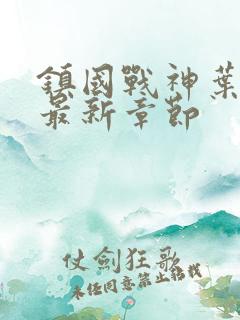 鎮國戰神葉
最新章節
仗劍狂歌
未经同意禁止转载